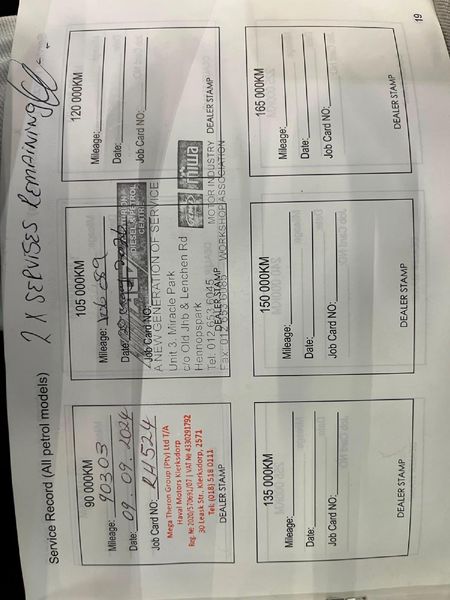 Service Record (All petrol models)
2 X SERVISES REMAINING
90 000KM
Mileage: 90303
Date: 09.09.2024
Job Card NO: RH524
Mega Theron Group (Pty) Ltd T/A
Haval Motors Klerksdorp
Reg. № 2020/570691/07 | VAT № 4330291792
30 Leask Str, Klerksdorp, 2571
Tel: (018) 518 0111
DEALER STAMP
105 000KM
Mileage: 106 089
Date:
Job Card NO:
DIESEL & PETROL
CENTRE
A NEW GENERATION OF SERVICE
Unit 3, Miracle Park
c/o Old Jhb & Lenchen Rd
Hennopspark
Tel: 012 653 0045
miwa
MOTOR INDUSTRY
WORKSHOP ASSOCIATION
DEALER STAMP
120 000KM
Mileage:
Date:
Job Card NO:
DEALER STAMP
135 000KM
Mileage:
Date:
Job Card NO:
DEALER STAMP
150 000KM
Mileage:
Date:
Job Card NO:
DEALER STAMP
165 000KM
Mileage:
Date:
Job Card NO:
DEALER STAMP
19